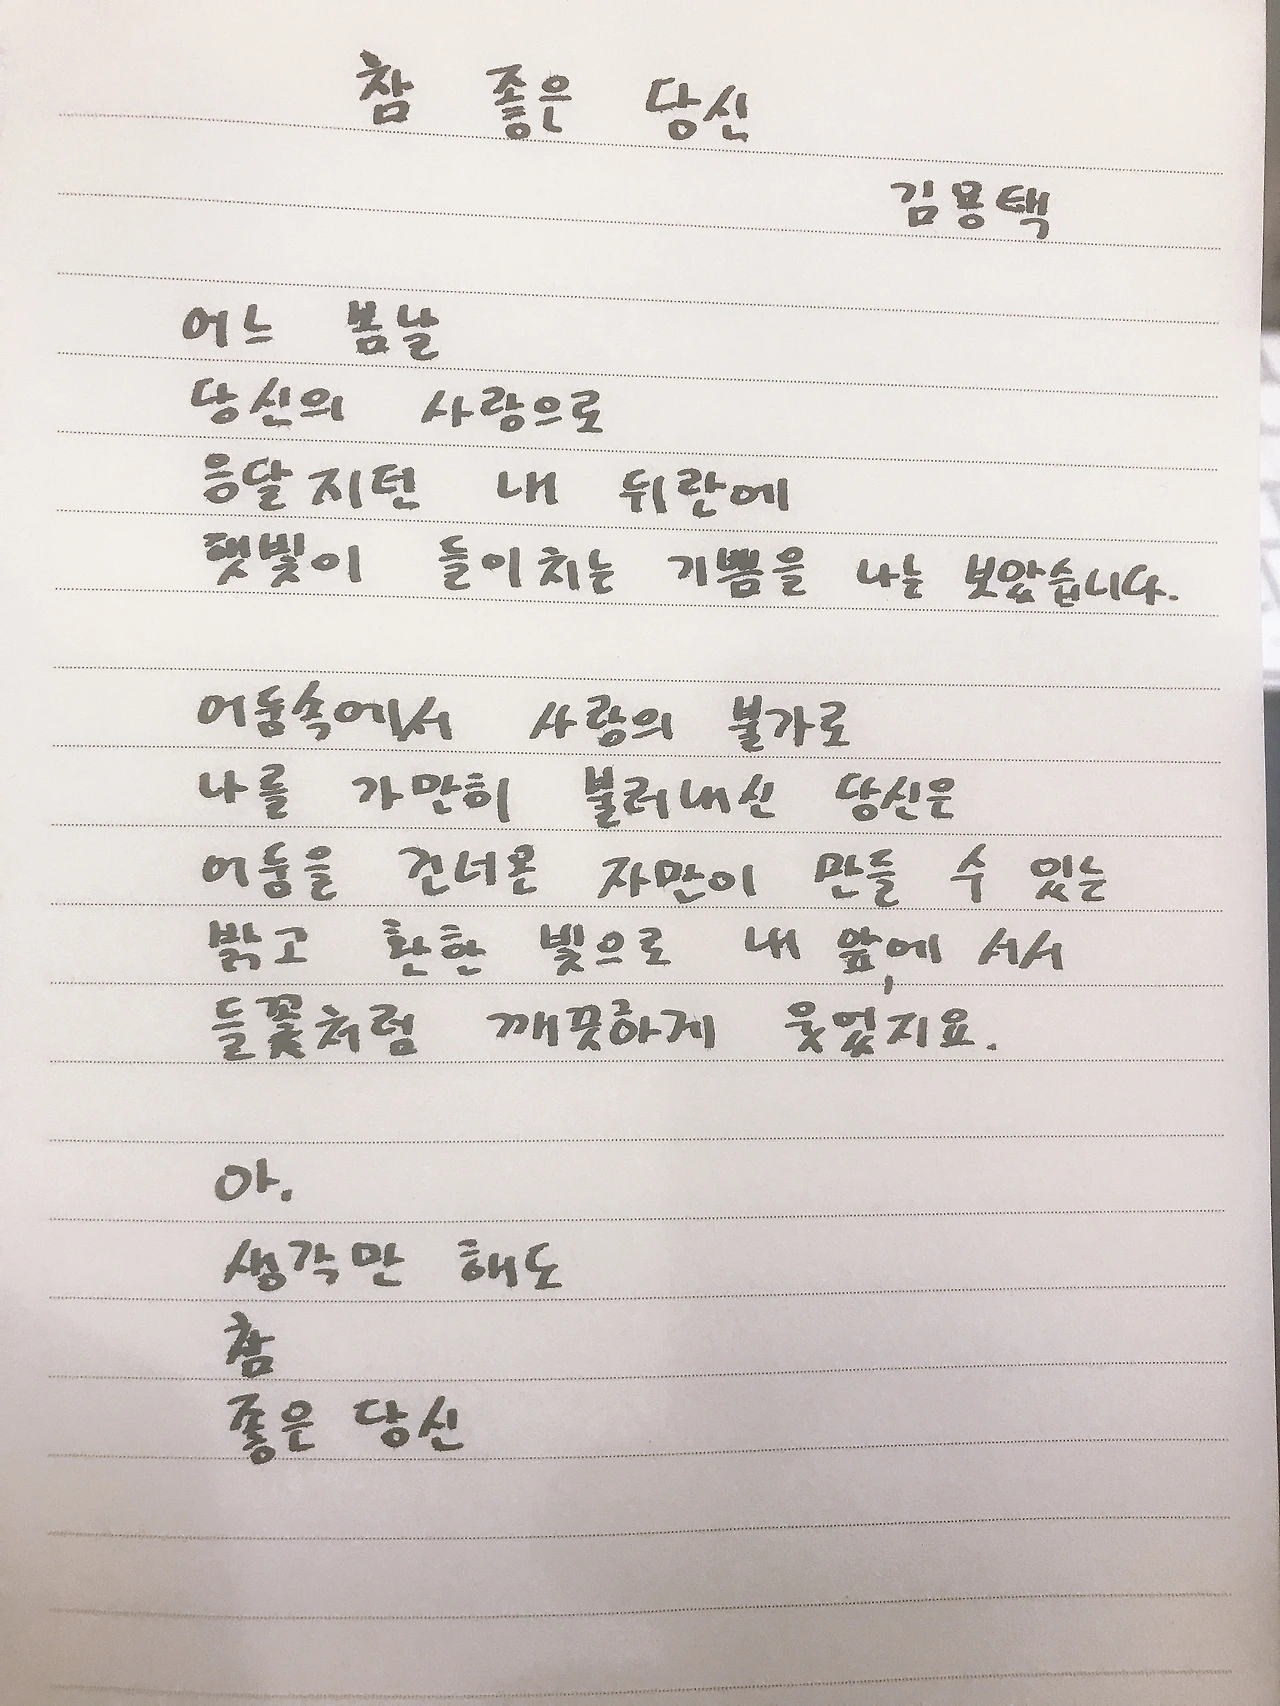 참 좋은 당신
김용택
어느 봄날
당신의 사랑으로
응달지던 내 뒤란에
햇빛이 들이치는 기쁨을 나는 보았습니다.
어둠속에서 사랑의 불가로
나를 가만히 불러내신 당신은
어둠을 건너온 자만이 만들 수 있는
밝고 환한 빛으로 내 앞에 서서
들꽃처럼 깨끗하게 웃었지요.
아.
생각만 해도
참
좋은 당신